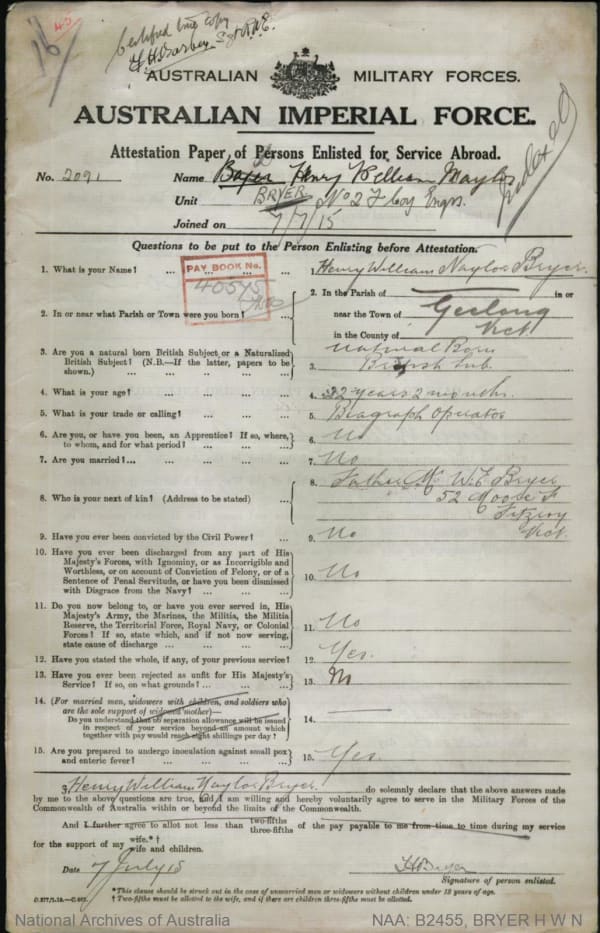 16
Certified true copy
AUSTRALIAN MILITARY FORCES.
AUSTRALIAN IMPERIAL FORCE.
Attestation Paper of Persons Enlisted for Service Abroad.
No. 2091 Name Henry William Naylor
BRYER
Unit No 2 F Coy Engrs.
Joined on 7/7/15
Questions to be put to the Person Enlisting before Attestation.
1. What is your Name? ... ... ... ... 1. Henry William Naylor Bryer.
PAY BOOK No.
40545
2. In or near what Parish or Town were you born? ... 2. In the Parish of in or
near the Town of Geelong
in the County of Vict.
3. Are you a natural born British Subject or a Naturalized British Subject? (N.B.—If the latter, papers to be shown.) ... ... ... ... 3. Natural Born
British Sub.
4. What is your age? ... ... ... ... 4. 22 years 2 months.
5. What is your trade or calling? ... ... ... 5. Biograph Operator
6. Are you, or have you been, an Apprentice? If so, where, to whom, and for what period? ... ... ... 6. No
7. Are you married?... ... ... ... ... 7. No
8. Who is your next of kin? (Address to be stated) ... 8. Father Mr W.E. Bryer
52 Moore St
Fitzroy
Vict.
9. Have you ever been convicted by the Civil Power? ... 9. No
10. Have you ever been discharged from any part of His Majesty's Forces, with Ignominy, or as Incorrigible and Worthless, or on account of Conviction of Felony, or of a Sentence of Penal Servitude, or have you been dismissed with Disgrace from the Navy? ... ... ... 10. No
11. Do you now belong to, or have you ever served in, His Majesty's Army, the Marines, the Militia, the Militia Reserve, the Territorial Force, Royal Navy, or Colonial Forces? If so, state which, and if not now serving, state cause of discharge ... ... ... ... 11. No
12. Have you stated the whole, if any, of your previous service? 12. Yes.
13. Have you ever been rejected as unfit for His Majesty's Service? If so, on what grounds? ... ... ... 13. No
14. (For married men, widowers with children, and soldiers who are the sole support of widowed mother)—
Do you understand that no separation allowance will be issued in respect of your service beyond an amount which together with pay would reach eight shillings per day? ... 14.
15. Are you prepared to undergo inoculation against small pox and enteric fever? ... ... ... ... 15. Yes.
I, Henry William Naylor Bryer. do solemnly declare that the above answers made
by me to the above questions are true, and I am willing and hereby voluntarily agree to serve in the Military Forces of the
Commonwealth of Australia within or beyond the limits of the Commonwealth.
And I further agree to allot not less than two-fifths three-fifths of the pay payable to me from time to time during my service
for the support of my wife.*† wife and children.
Date 7 July 15 HBryer
Signature of person enlisted.
*This clause should be struck out in the case of unmarried men or widowers without children under 18 years of age.
† Two-fifths must be allotted to the wife, and if there are children three-fifths must be allotted.
National Archives of Australia NAA: B2455, BRYER H W N